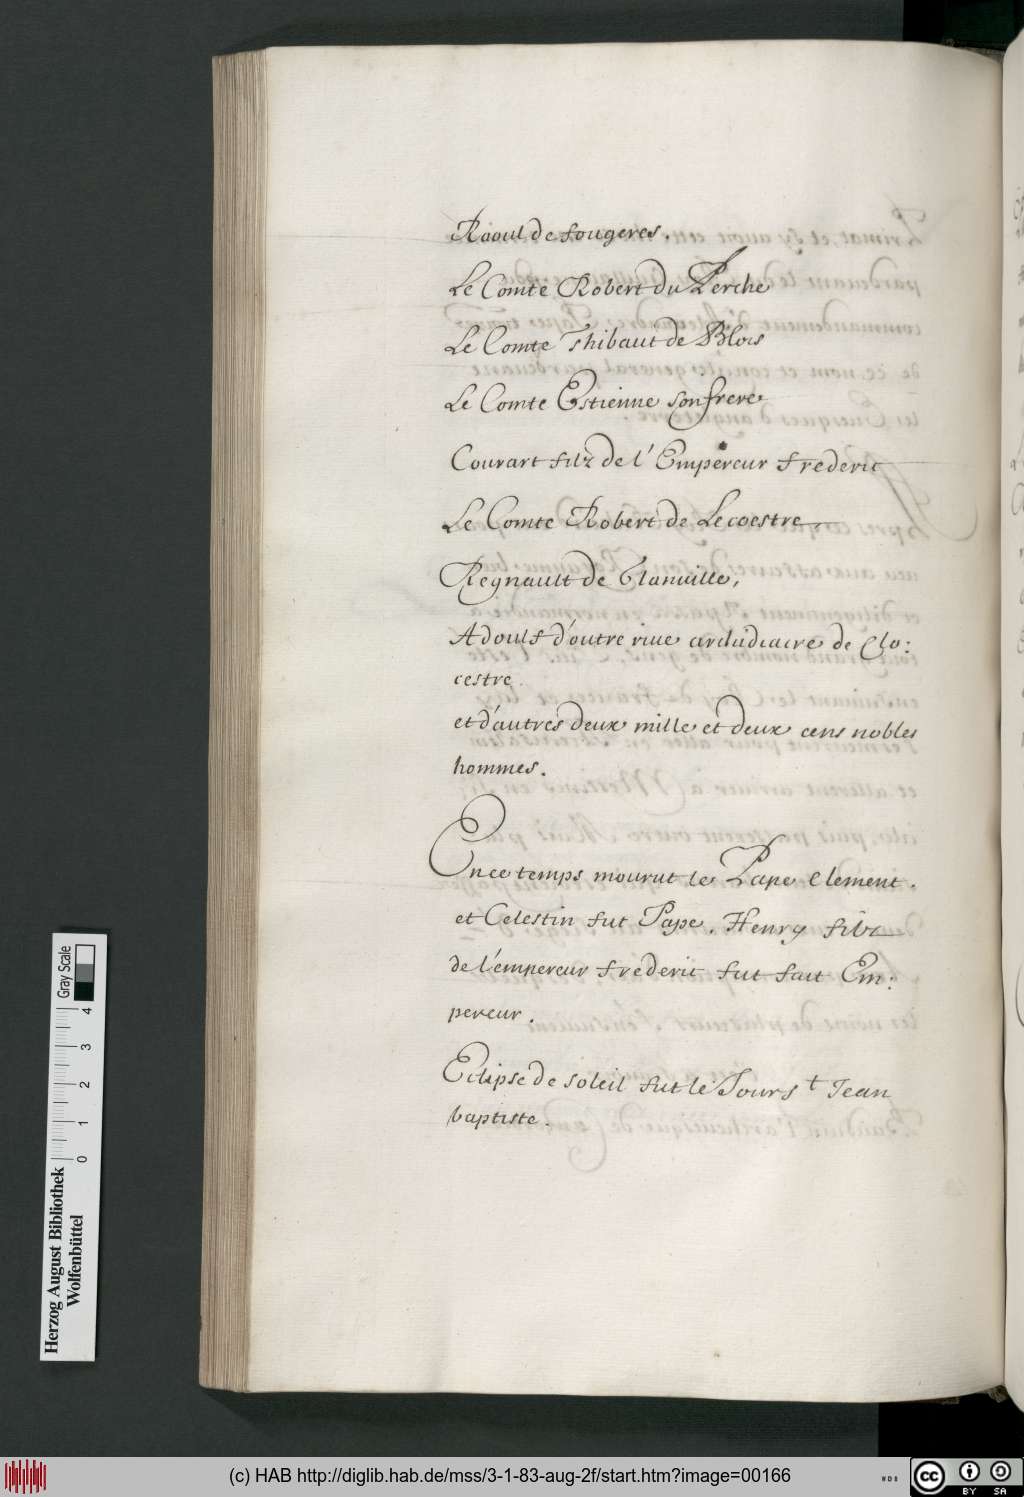 Raoul de fougeres.
Le Comte Robert du Perche
Le Comte Thibaut de Blois
Le Comte Estienne son frere
Courart filz de l'Empereur frederic
Le Comte Robert de Lecoestre
Regnault de Glanuille,
Adoulf d'outre riue archidiacre de Clo:
cestre.
et d'autres deux mille et deux cens nobles
hommes.
En ce temps mourut le Pape Clement.
et Celestin fut Pape. Henry filz
de l'empereur frederic fut fait Em:
pereur.
Eclipse de soleil fut le Jour s<sup>t</sup> Jean
baptiste.
Gray Scale
0 1 2 3 4
Herzog August Bibliothek
Wolfenbüttel
(c) HAB http://diglib.hab.de/mss/3-1-83-aug-2f/start.htm?image=00166
WDB
cc BY SA